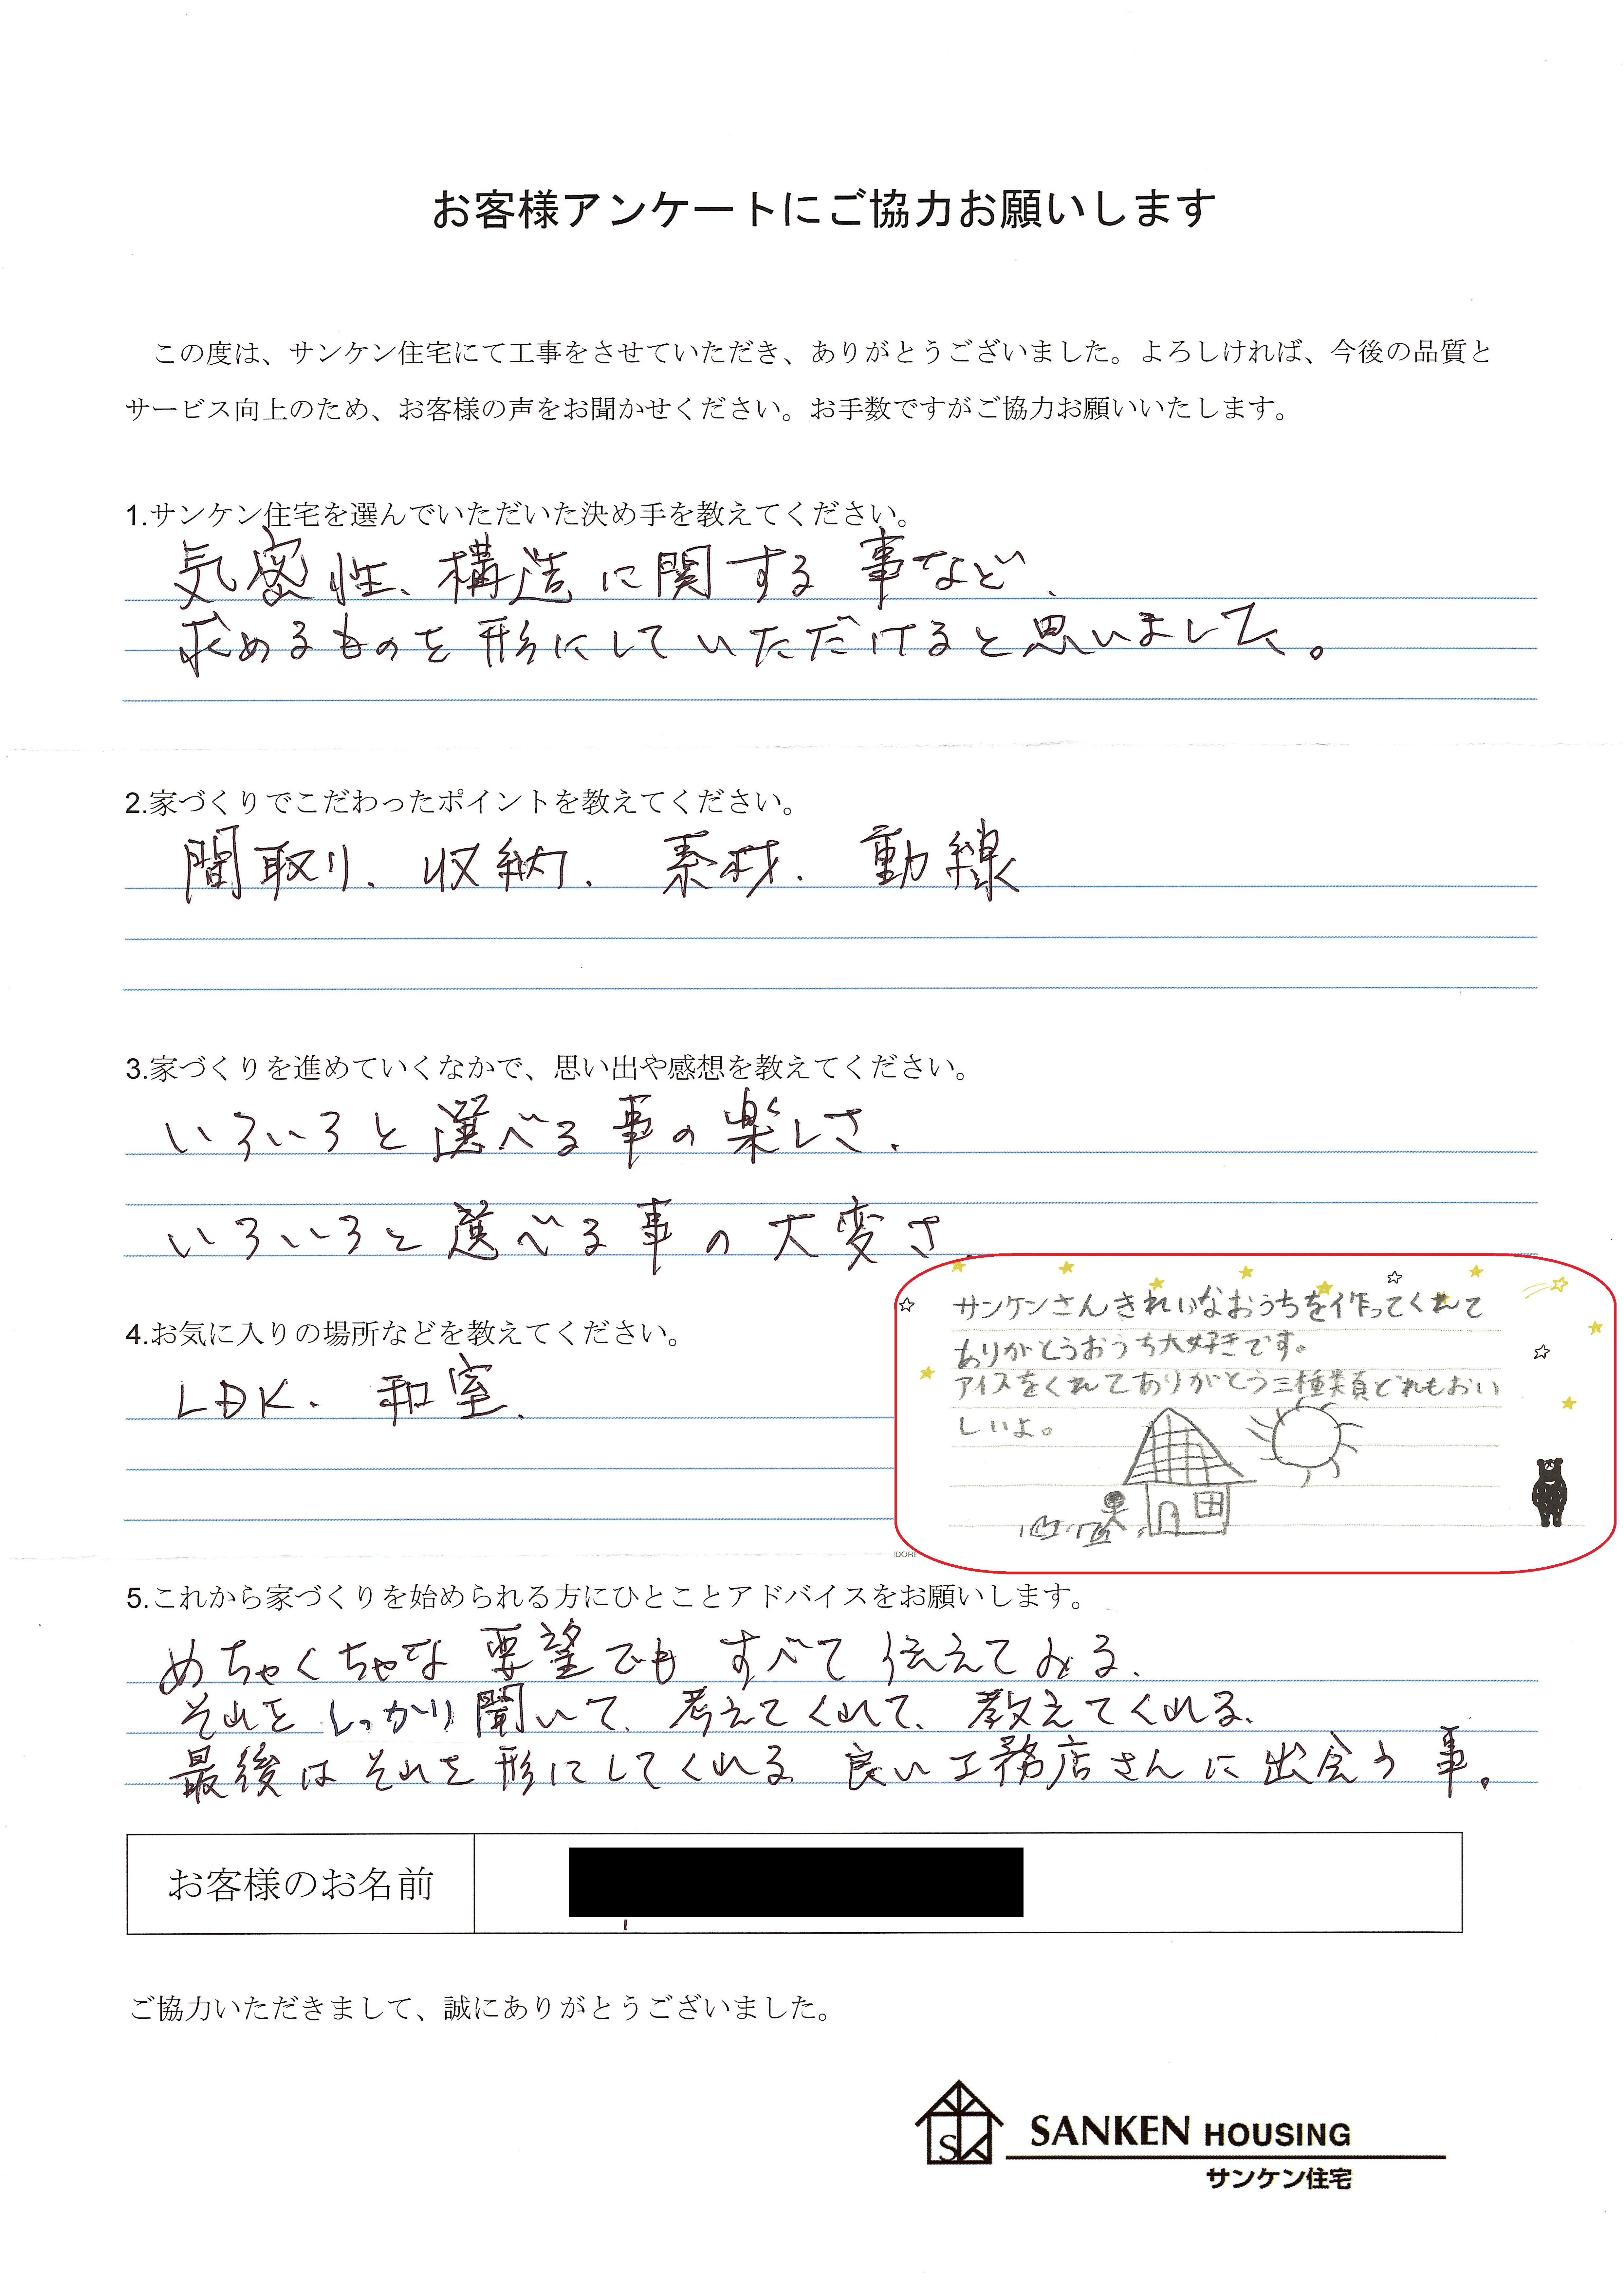 お客様アンケートにご協力お願いします
この度は、サンケン住宅にて工事をさせていただき、ありがとうございました。よろしければ、今後の品質と
サービス向上のため、お客様の声をお聞かせください。お手数ですがご協力お願いいたします。
1.サンケン住宅を選んでいただいた決め手を教えてください。
気密性、構造に関する事など、
求めるものを形にしていただけると思いました。
2.家づくりでこだわったポイントを教えてください。
間取り、収納、素材、動線
3.家づくりを進めていくなかで、思い出や感想を教えてください。
いろいろと選べる事の楽しさ、
いろいろと選べる事の大変さ、
4.お気に入りの場所などを教えてください。
LDK、和室、
サンケンさんきれいなおうちを作ってくれて
ありがとうおうち大好きです。
アイスをくれてありがとう三種類どれもおい
しいよ。
DORI
5.これから家づくりを始められる方にひとことアドバイスをお願いします。
めちゃくちゃな要望でもすべて伝えてみる、
それをしっかり聞いて、考えてくれて、教えてくれる、
最後はそれを形にしてくれる良い工務店さんに出会う事。
お客様のお名前
ご協力いただきまして、誠にありがとうございました。
SANKEN HOUSING
サンケン住宅